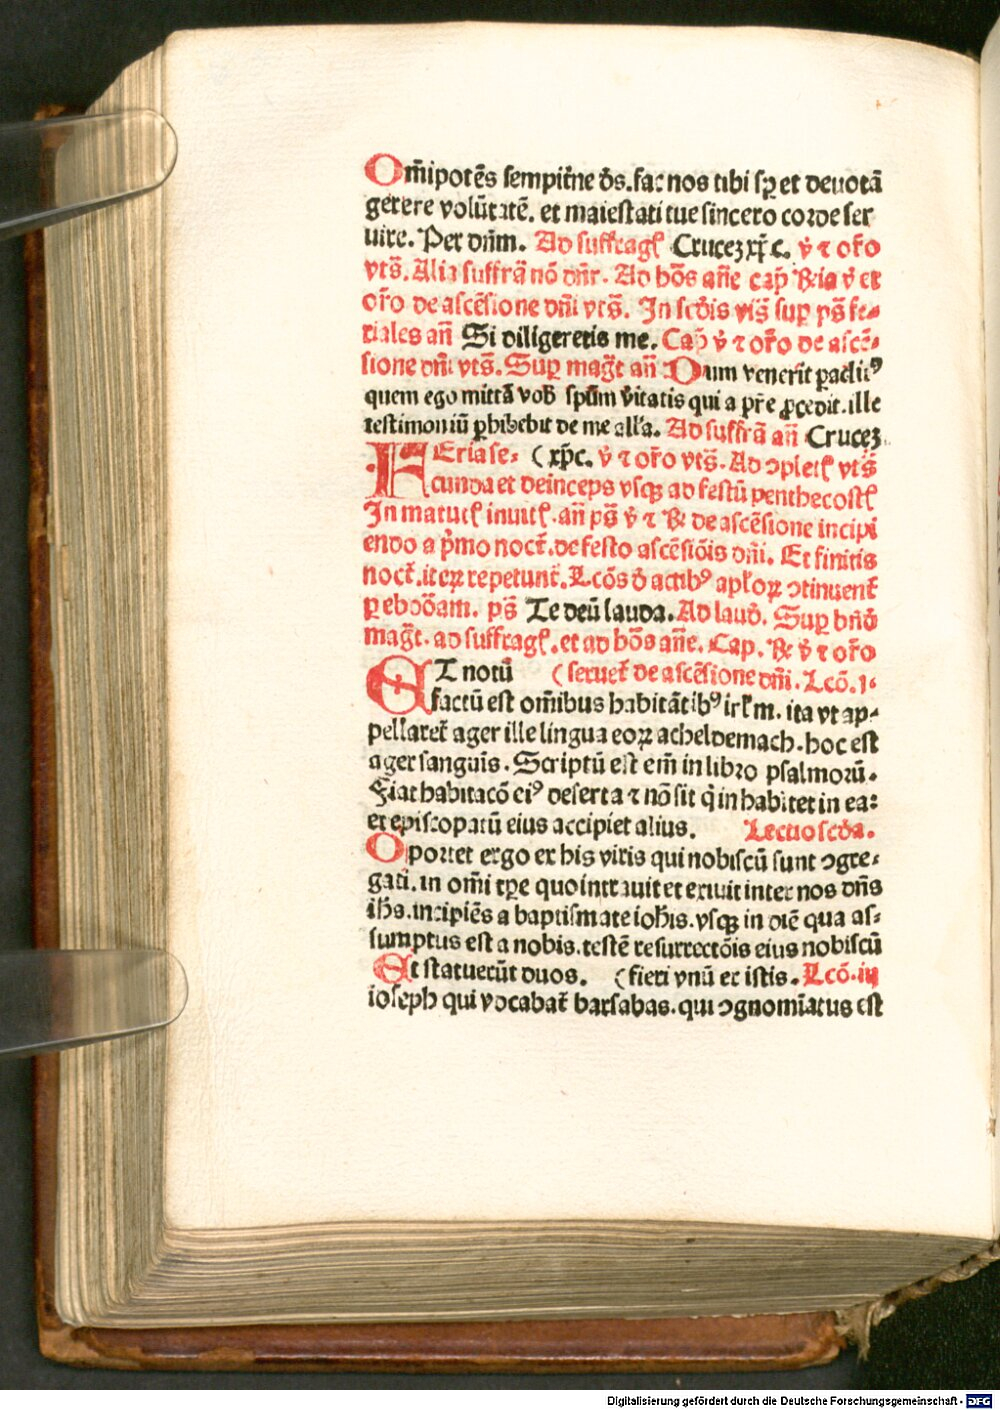 Om̄ipotēs sempit̄ne d̄s. fac nos tibi sꝑ et deuotā
gerere volūtatē. et maiestati tue sincero corde ser
uire. Per dn̄m. Ad suffragꝭ Crucez xp̄c. v̄ ⁊ or̄o
vts̄. Alia suffrā nō dn̄r. Ad hōs an̄e cap̄ ℟ia v̄ et
or̄o de ascēsione dn̄i vts̄. In scd̄is vīs suꝑ ps̄ fe-
riales an̄ Si diligeretis me. Cap̄ v̄ ⁊ or̄o de ascē-
sione dn̄i vts̄. Suꝑ maḡt an̄ Dum venerit paclitꝰ
quem ego mittā vob̄ spm̄ v̄itatis qui a pr̄e ꝓcedit. ille
testimoniū ꝑhibebit de me all'a. Ad suffrā an̄ Crucez
FEria se- ( xp̄c. v̄ ⁊ or̄o vts̄. Ad ↄpletꝭ vts̄
cunda et deinceps vsqꝫ ad festū penthecostꝭ
In matutꝭ inuitꝭ. an̄ ps̄ v̄ ⁊ ℟ de ascēsione incipi
endo a p̄mo noct̄. de festo ascēsiōis dn̄i. Et finitis
noct̄. iteꝝ repetunt̄. Lcōs d̄ actibꝰ apl'oꝝ ↄtinuent̄
ꝑ ebdōam. ps̄ Te deū lauda. Ad laud̄. Suꝑ bn̄d̄
maḡt. ad suffragꝭ. et ad hōs an̄e. Cap. ℟ v̄ ⁊ or̄o
ET notū ( seruet̄ de ascēsione dn̄i. Lcō. 1.
factū est om̄ibus habitātibꝰ irl'm. ita vt ap-
pellaret̄ ager ille lingua eoꝝ acheldemach. hoc est
ager sanguīs. Scriptū est em̄ in libro psalmorū.
Fiat habitacō eiꝰ deserta ⁊ nō sit q̄ inhabitet in ea:
et episcopatū eius accipiet alius. Lectio scd̄a.
Oportet ergo ex his viris qui nobiscū sunt ↄgre-
gati. in om̄i tꝑe quo intrauit et exiuit inter nos dn̄s
ih̄s. incipiēs a baptismate ioh̄is. vsqꝫ in diē qua as-
sumptus est a nobis. testē resurrectōis eius nobiscū
Et statuerūt duos. ( fieri vnū ex istis. Lcō. iij
ioseph qui vocabat̄ barsabas. qui ↄgnomīatus est
Digitalisierung gefördert durch die Deutsche Forschungsgemeinschaft - DFG